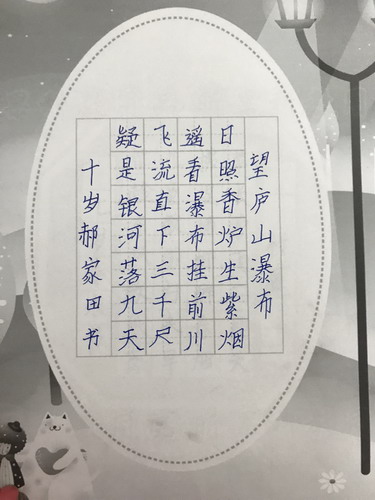 望庐山瀑布
日照香炉生紫烟
遥看瀑布挂前川
飞流直下三千尺
疑是银河落九天
十岁郝家田书